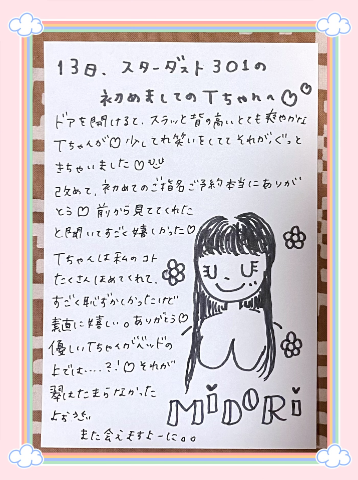 13日、スターダスト301の
初めましてのTちゃんへ♡♡
ドアを開けるて、スラッと背の高いとても爽やかな
Tちゃんが♡少してれ笑いをしててそれが、ぐっと
きちゃいました♡
改めて、初めてのご指名ご予約本当にありが
とう♡前から見ててくれた
と聞いてすごく嬉しかった♡
Tちゃんは私のコト
たくさんほめてくれて、
すごく恥ずかしかったけど
素直に嬉しい。ありがとう♡
優しいTちゃんがベッドの
上では....?!♡それが
翠はたまらなかった
よぅ
また会えますよーに。。
MiDORi